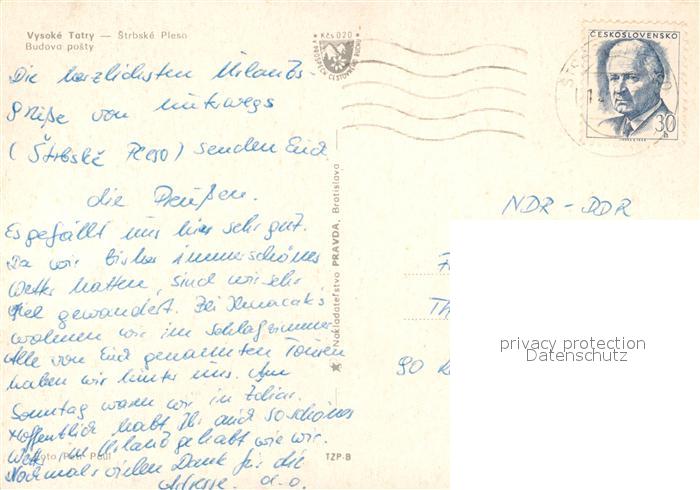 Vysoké Tatry — Štrbské Pleso
Budova pošty
Die herzlichsten Urlaubs-
grüße von unterwegs
(Štrbské Pleso) senden Euch
die Preußen.
Es gefällt uns hier sehr gut.
Da wir bisher immer schönes
Wetter hatten, sind wir sehr
viel gewandert. Bei
wohnen wir im Schlafzimmer
Alle von Euch genannten Touren
haben wir hinter uns. Am
Sonntag waren wir in Ždiar.
Hoffentlich habt Ihr auch so schönes
Wetter im Urlaub gehabt wie wir.
Nochmals vielen Dank für die
Adresse. d. o.
Foto Petr Paul
TZP-B
★ Nakladateľstvo PRAVDA, Bratislava
Kčs 0,20
V PROSPECH CESTOVNÉHO RUCHU
ČESKOSLOVENSKO
30 h
NDR - DDR
90
privacy protection
Datenschutz